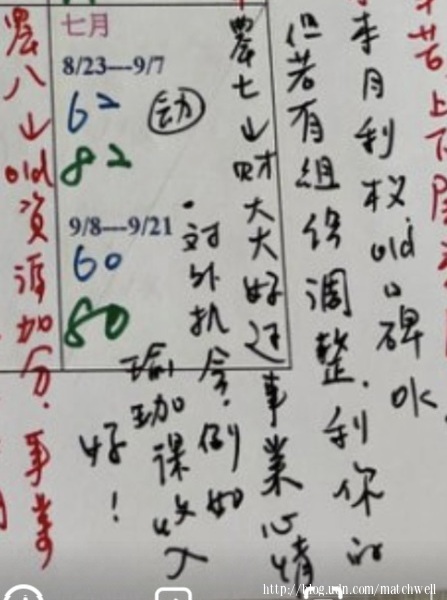 辛苦上下
本月利权old口碑水
但若有組织调整.利你的
農七山财大大好运事業心情
·对外机会.例如
瑜珈课收入
好!
七月
8/23---9/7
62 动
82
9/8---9/21
60
80
農八山old資源加分.事業
http://blog.udn.com/matchwell